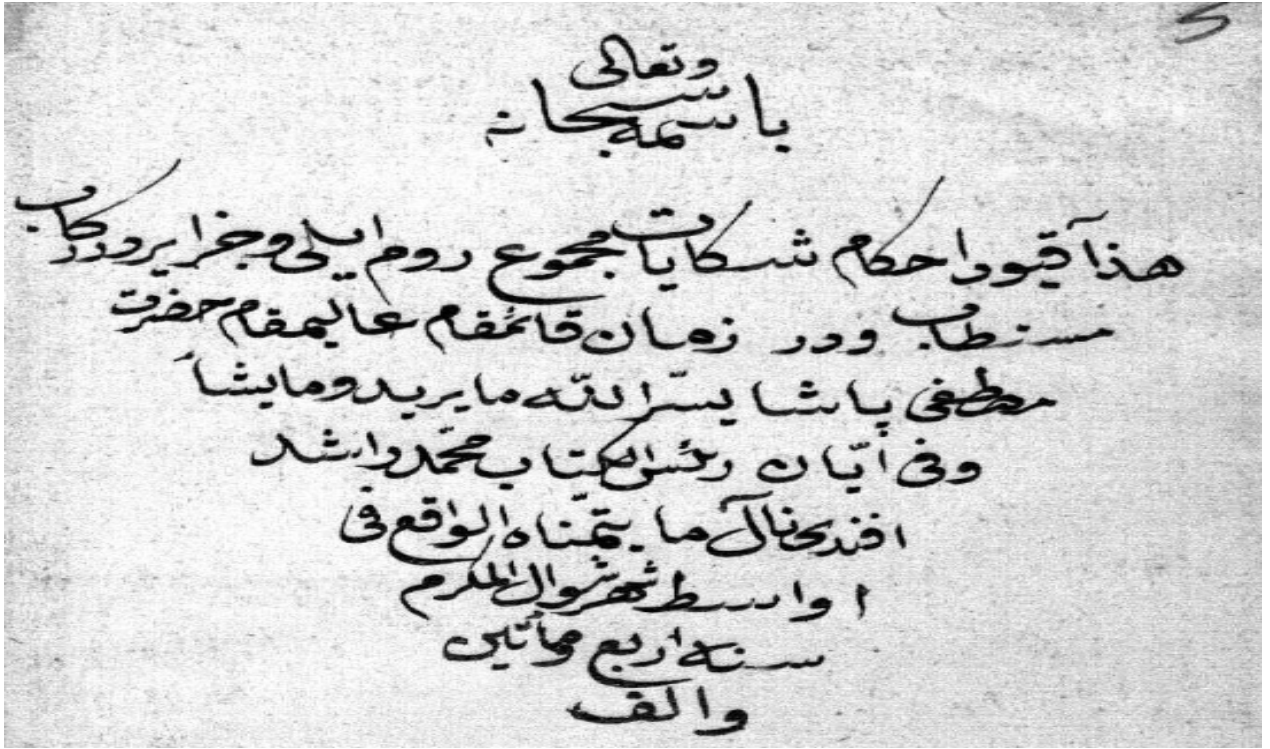 باسمه سبحانه وتعالى
هذا قيود احكام شكايات مجموع روم ايلى وجزاير ودر ركاب
مستطاب ودر زمان قائمقام عاليمقام حضرت
مصطفى پاشا يسّر الله ما يريد وما يشاء
وفى ايّان رئيس الكتاب محمّد راشد
افندى نال ما يتمنّاه الواقع فى
اواسط شهر شوال المكرم
سنة اربع ومأتين
والف